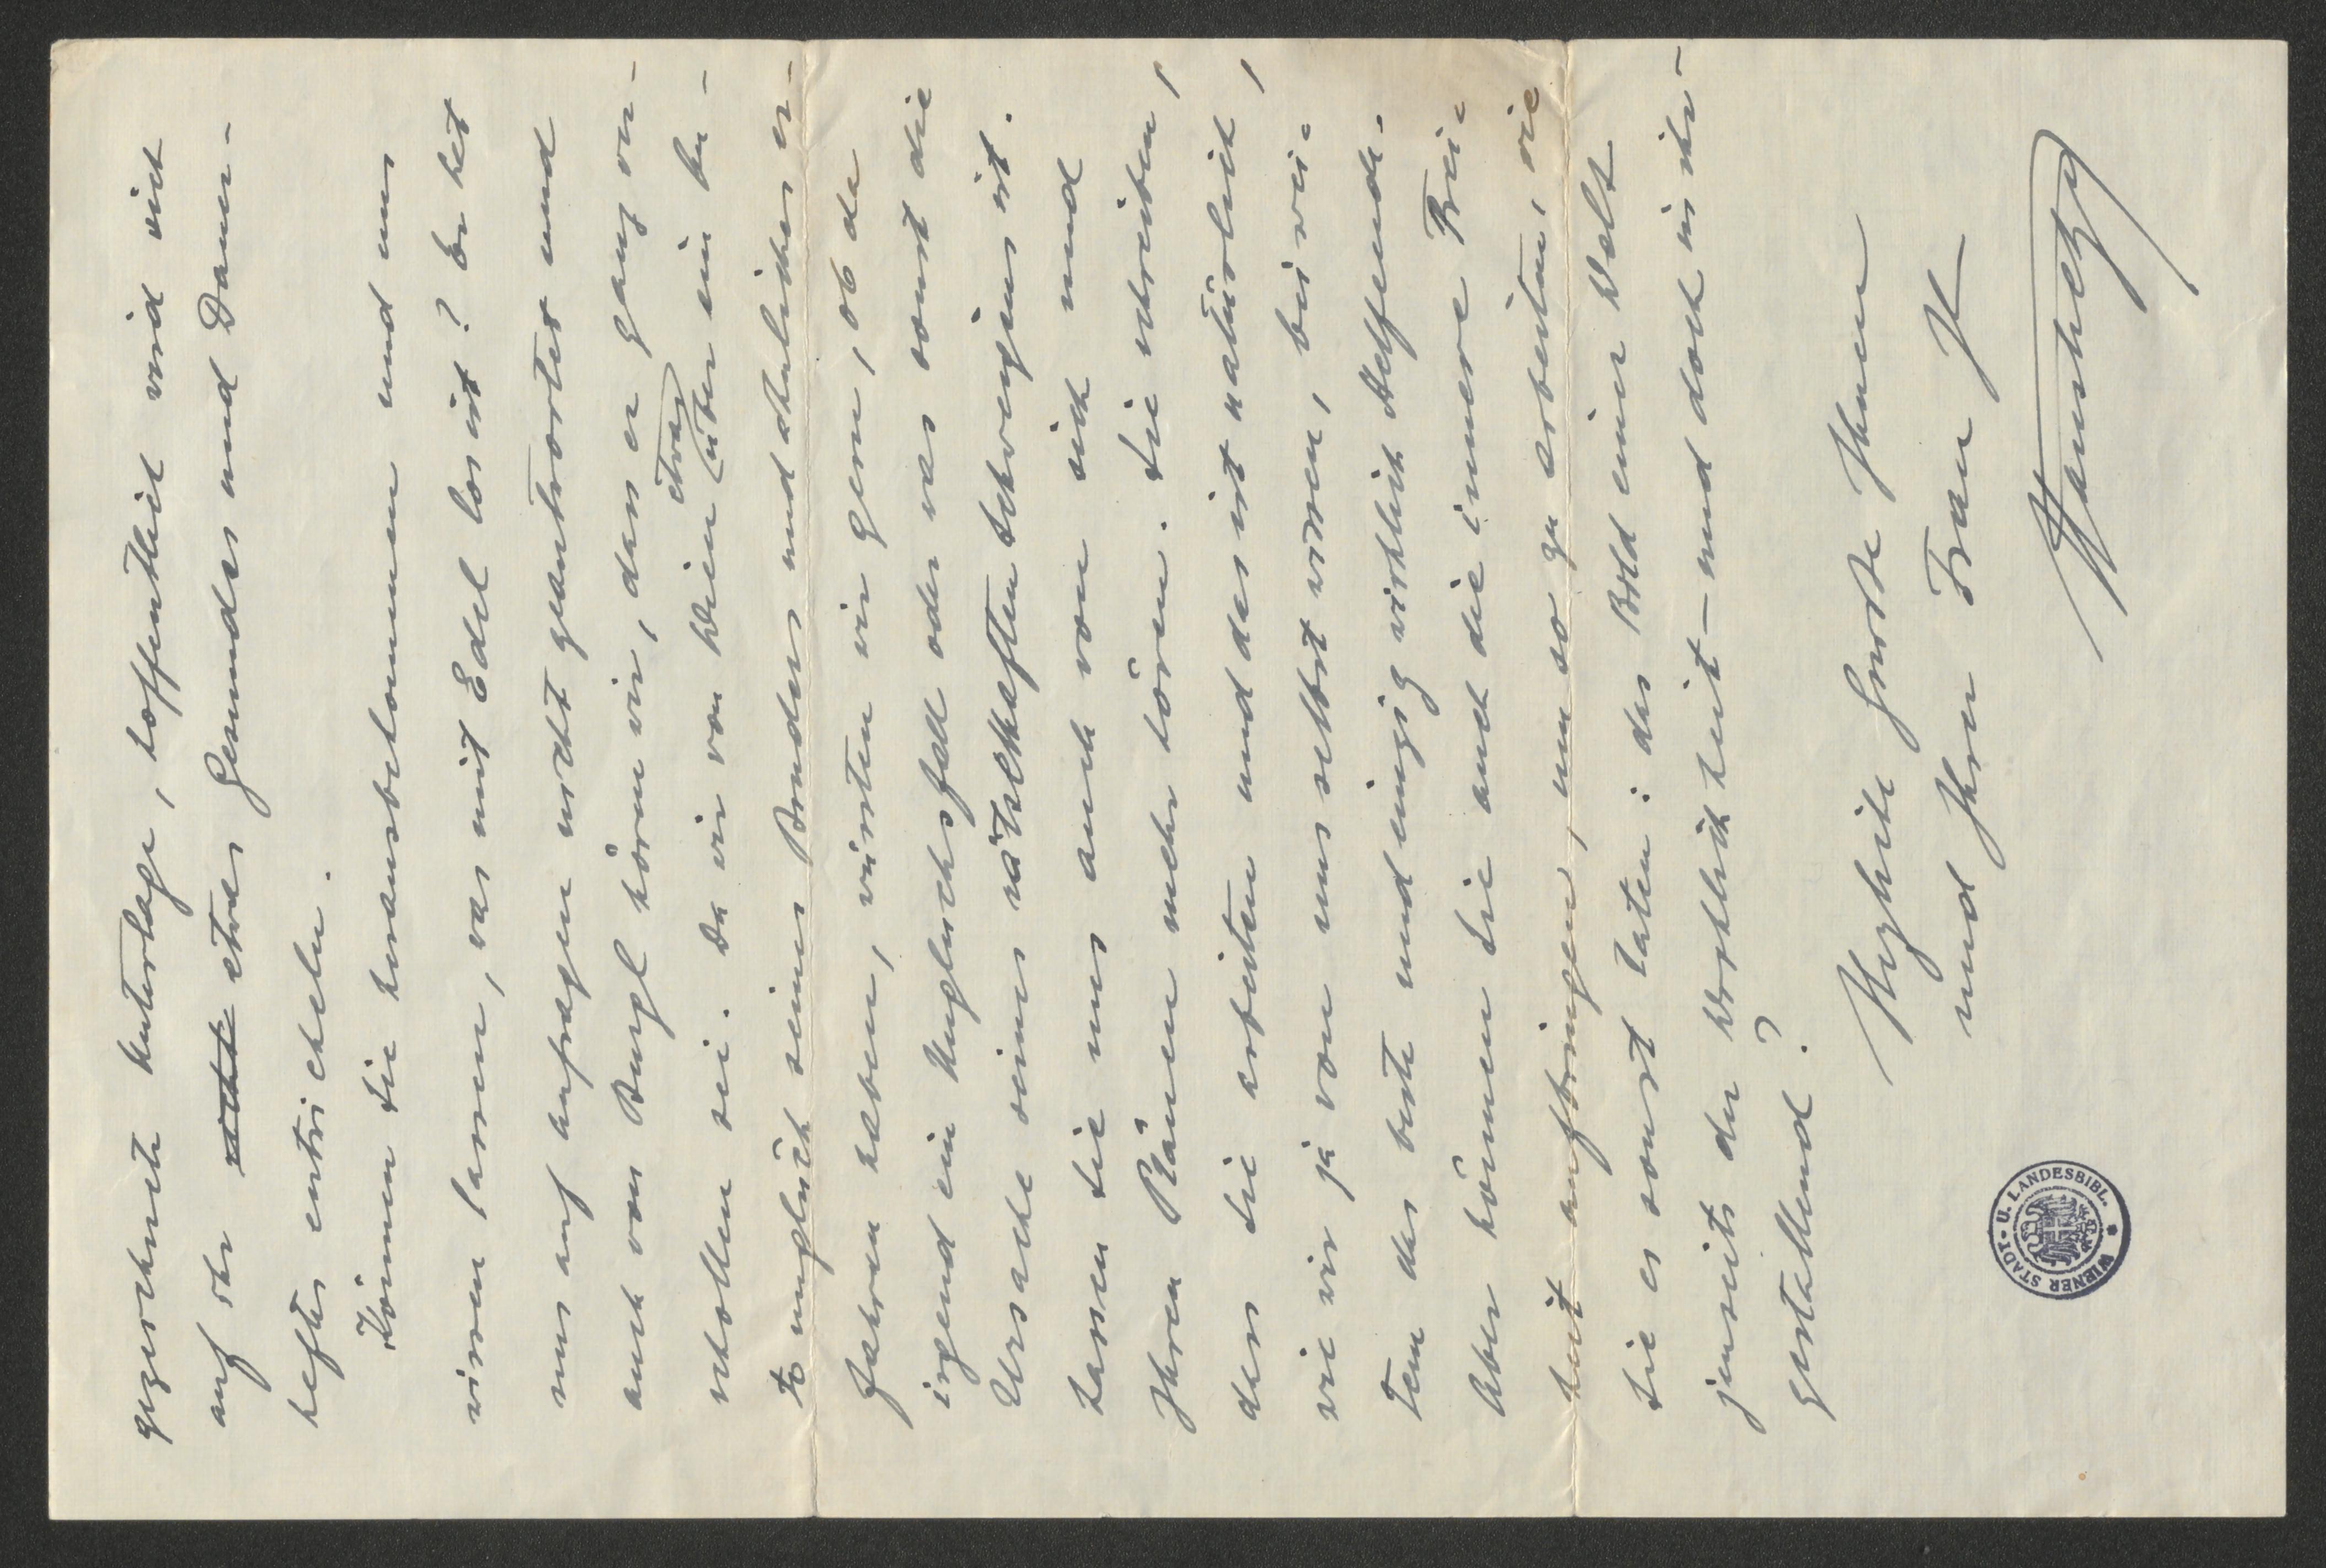 gezeichnete Unterlage, hoffentlich wird sich
auf ihr etwas Gesundes und Dauer-
haftes entwickeln.
Können Sie herausbekommen und uns
wissen lassen, was mit Edel los ist? Er hat
uns auf Anfragen nicht geantwortet und
auch von Bungl hören wir, dass er ganz ver-
schollen sei. Da wir von Wien etwas über ein Un-
to unglück seines Bruders und ähnliches er-
fahren haben, wüssten wir gern, ob da
irgend ein Unglücksfall oder was sonst die
Ursache seines rätselhaften Schweigens ist.
Lassen Sie uns auch von sich und
Ihren Plänen mehr hören. Sie schreiben,
dass Sie arbeiten und das ist natürlich,
wie wir ja von uns selbst wissen, bei wei-
tem das beste und einzig wirklich Helfende.
Aber können Sie auch die innere Frei-
heit aufbringen, um so zu arbeiten, wie
Sie es sonst taten: das Bild einer Welt
jenseits der Wirklichkeit – und doch in ihr –
gestaltend?
Herzliche Grüsse Ihnen
und Ihrer Frau
WIENER STADT- U. LANDESBIBL.